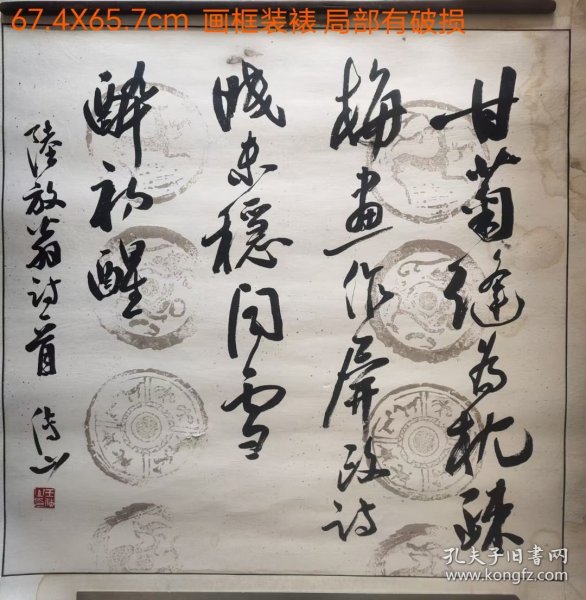 67.4X65.7cm 画框装裱 局部有破损
甘菊缝为枕疎
梅畫作屏改诗
眠未穩闻雪
醉初醒
陸放翁诗一首
孔夫子旧书网
www.kongfz.com